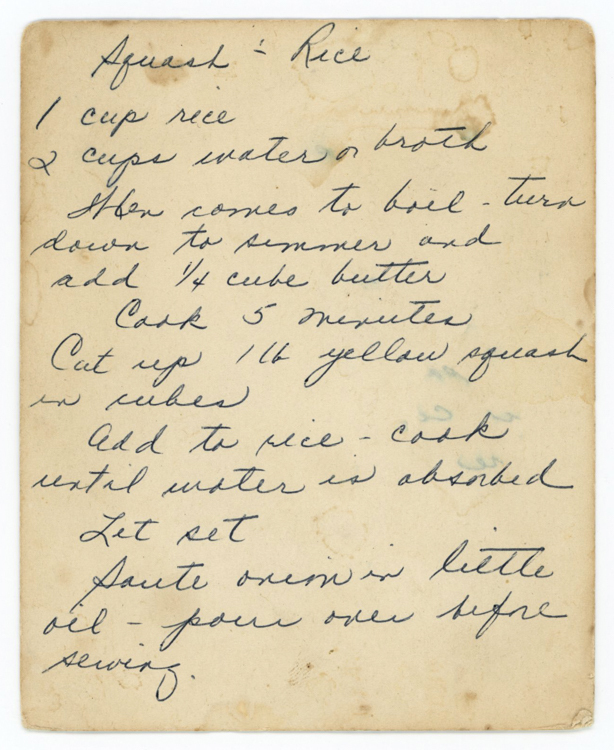 Squash - Rice
1 cup rice
2 cups water or broth
When comes to boil - turn
down to simmer and
add 1/4 cube butter
Cook 5 minutes
Cut up 1 lb yellow squash
in cubes
Add to rice - cook
until water is absorbed
Let set
Saute onion in little
oil - pour over before
serving.